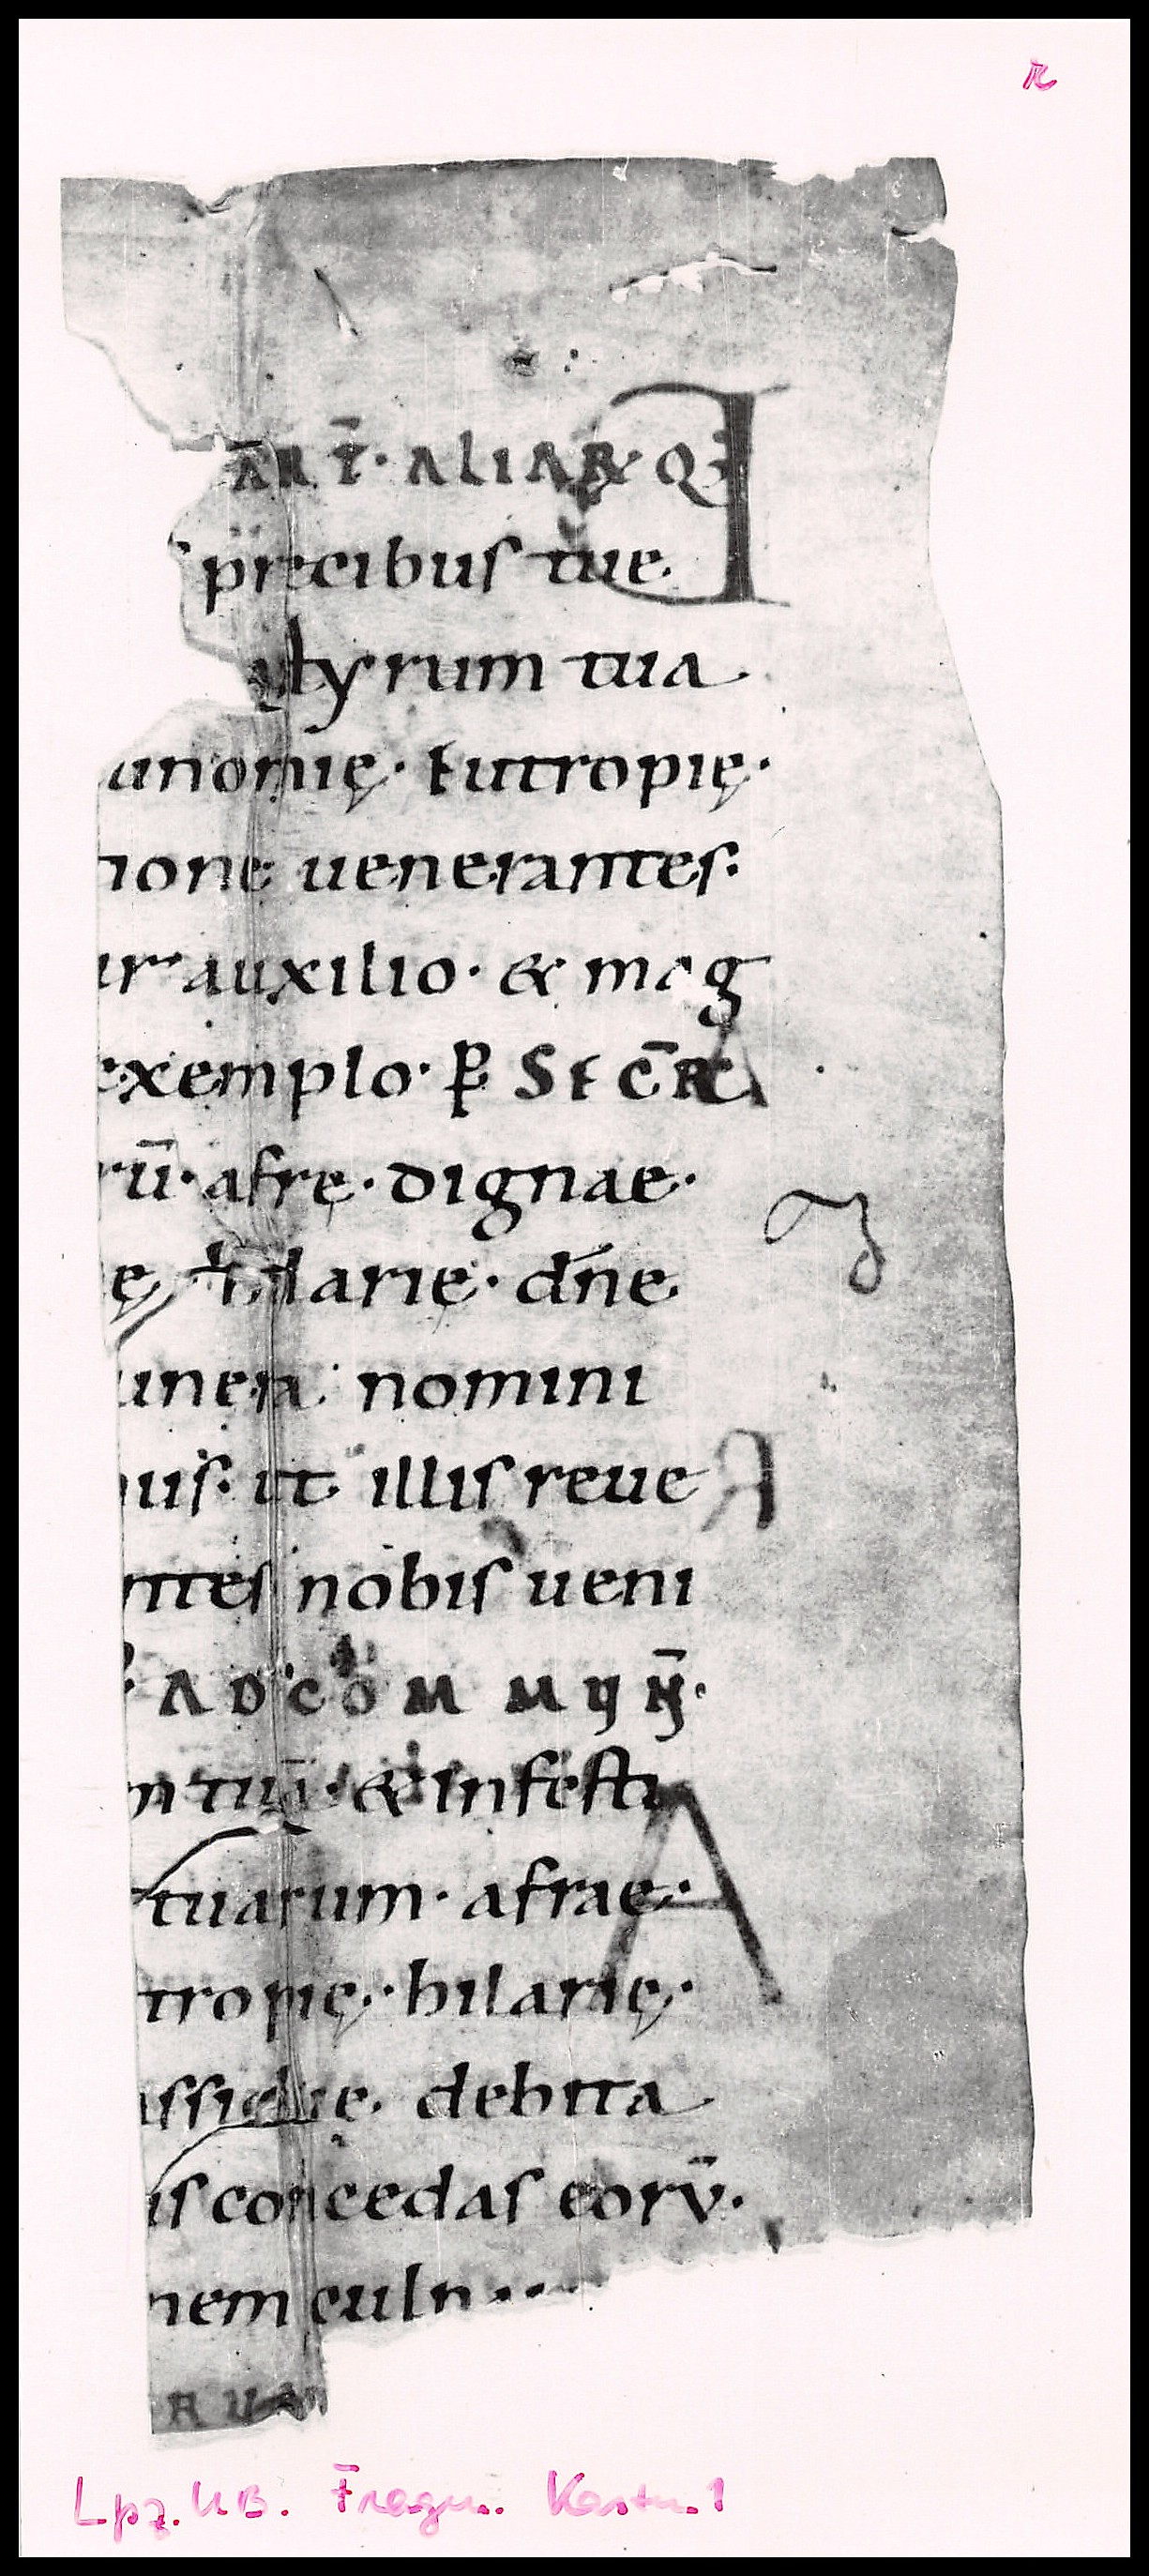 R
ĀR T̄· ALIAR· Q
precibus tue
tyrum tua
unomię· Eutropię·
ione uenerantes·
ur auxilio· & mag
exemplo· P̄ SECR̄
rū· afrę· dignae·
ę hilarie· dn̄e
unera nomini
uis· ut illis reue
ntes nobis ueni
AD COMMUN̄·
m tuū· & Infesti
tuarum· afrae·
tropię· hilarię·
assidue debita
is concedas eorū·
nem culn
Lpz. UB. Fragm. Kastn. 1